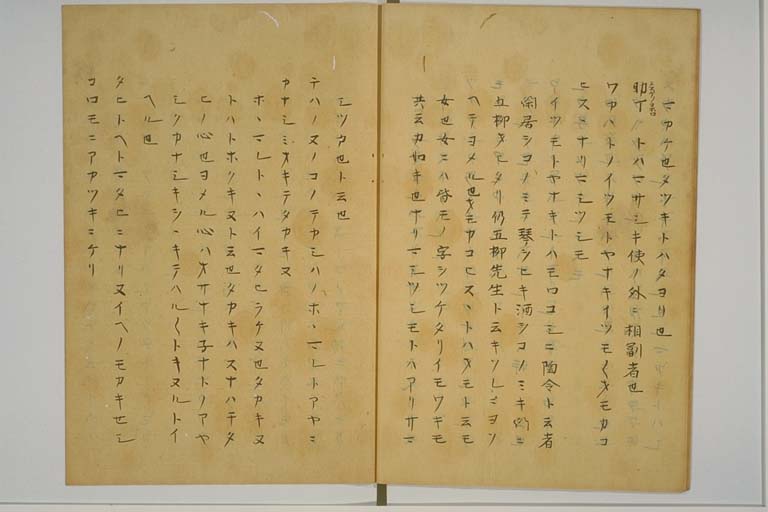 マカケ也タツキトハタヨリ也
助丁トハマサシキ使ノ外ニ相副者也
ワカハトノイツモトヤナキイツモ〱オモカコ
ヒスナリマシツシモ
イツモトヤナキトハモロコシニ陶令ト云者
閑居シコノミテ琴シヒキ酒シコノミキ門ニ
五柳オヒタリ仍五柳先生ト云キソレニヨソ
ヘテヨメル也オモカコヒスヽトハオモト云モ
女也女ニハ皆モノ字シツケタリイモワキモ
共云カ如キ也ナリマシツシモトハアリサマ
シツカ也ト云也
テハノヌノコノテカシハノホヽマレトアヤニ
カナシミオキテタカキヌ
ホヽマレトヽハイマタヒラケヌ也タカキヌ
トハトホソキヌト云也タカキハスナハチタ
ヒノ心也ヨメル心ハオサナキ子ナトノアヤ
シクカナシキシヽキテハル〱トキヌルトイ
ヘル也
タヒトヘトマタヒニナリヌイヘノモカキセシ
コロモニアカツキニケリ